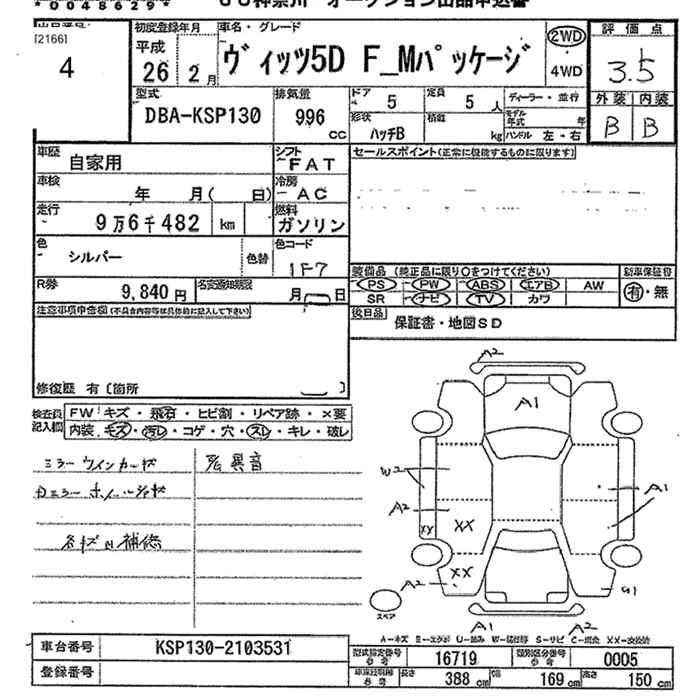 *0048629*
出品番号
[2166]
4
初度登録年月 車名・グレード
平成 26年 2月 ヴィッツ5D F_Mパッケージ
2WD
4WD
評価点
3.5
外装 内装
B B
型式 排気量 ドア 定員 ディーラー・並行
DBA-KSP130 996 CC 5 5人
形状 ハッチB 積載 kg
モデル年式 年
ハンドル 左・右
車歴 自家用 シフト FAT
セールスポイント(正常に機能するものに限ります)
車検 年 月( 日) 冷房 AC
走行 9万6千482 km 燃料 ガソリン
色 シルバー 色替 色コード 1F7
R券 9,840円 名変通知期限 月 日
装備品 (純正品に限り○をつけてください) 新車保証書
PS PW ABS エアB AW 有・無
SR ナビ TV カワ
後日品 保証書・地図SD
注意事項申告欄(不具合内容等は具体的に記入して下さい)
修復歴 有〔箇所 〕
検査員記入欄 FW キズ・飛石・ヒビ割・リペア跡・×要
内装 キズ・汚レ・コゲ・穴・スレ・キレ・破レ
ミラーウインカー
異音
ホイール
補修
A2
A1
W2
A2
XX
XX
A2
A1
A1
A2
スペア
A-キズ E-エクボ U-凹み W-補修跡 S-サビ C-腐食 XX-交換済
車台番号 KSP130-2103531
登録番号
型式指定番号 参考 16719 類別区分番号 参考 0005
長さ 388 cm 幅 169 cm 高さ 150 cm